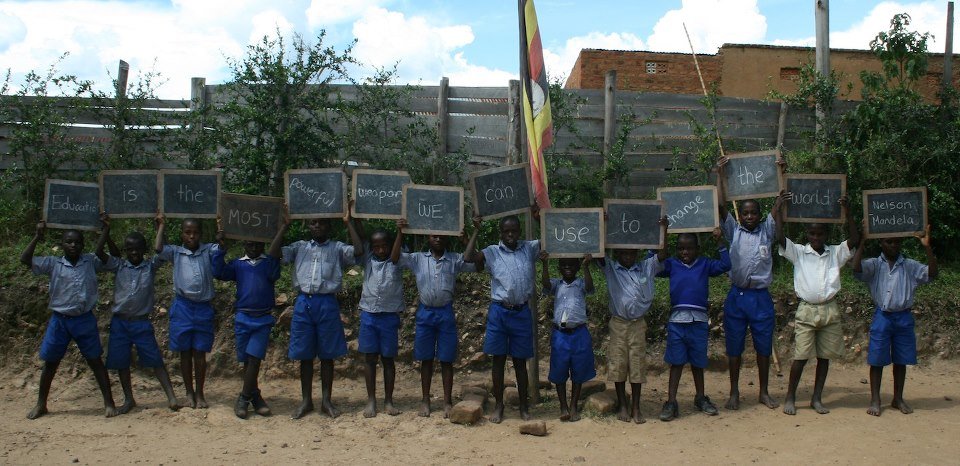 Education
is
the
MOST
powerful
weapon
WE
can
use
to
change
the
world
Nelson
Mandela